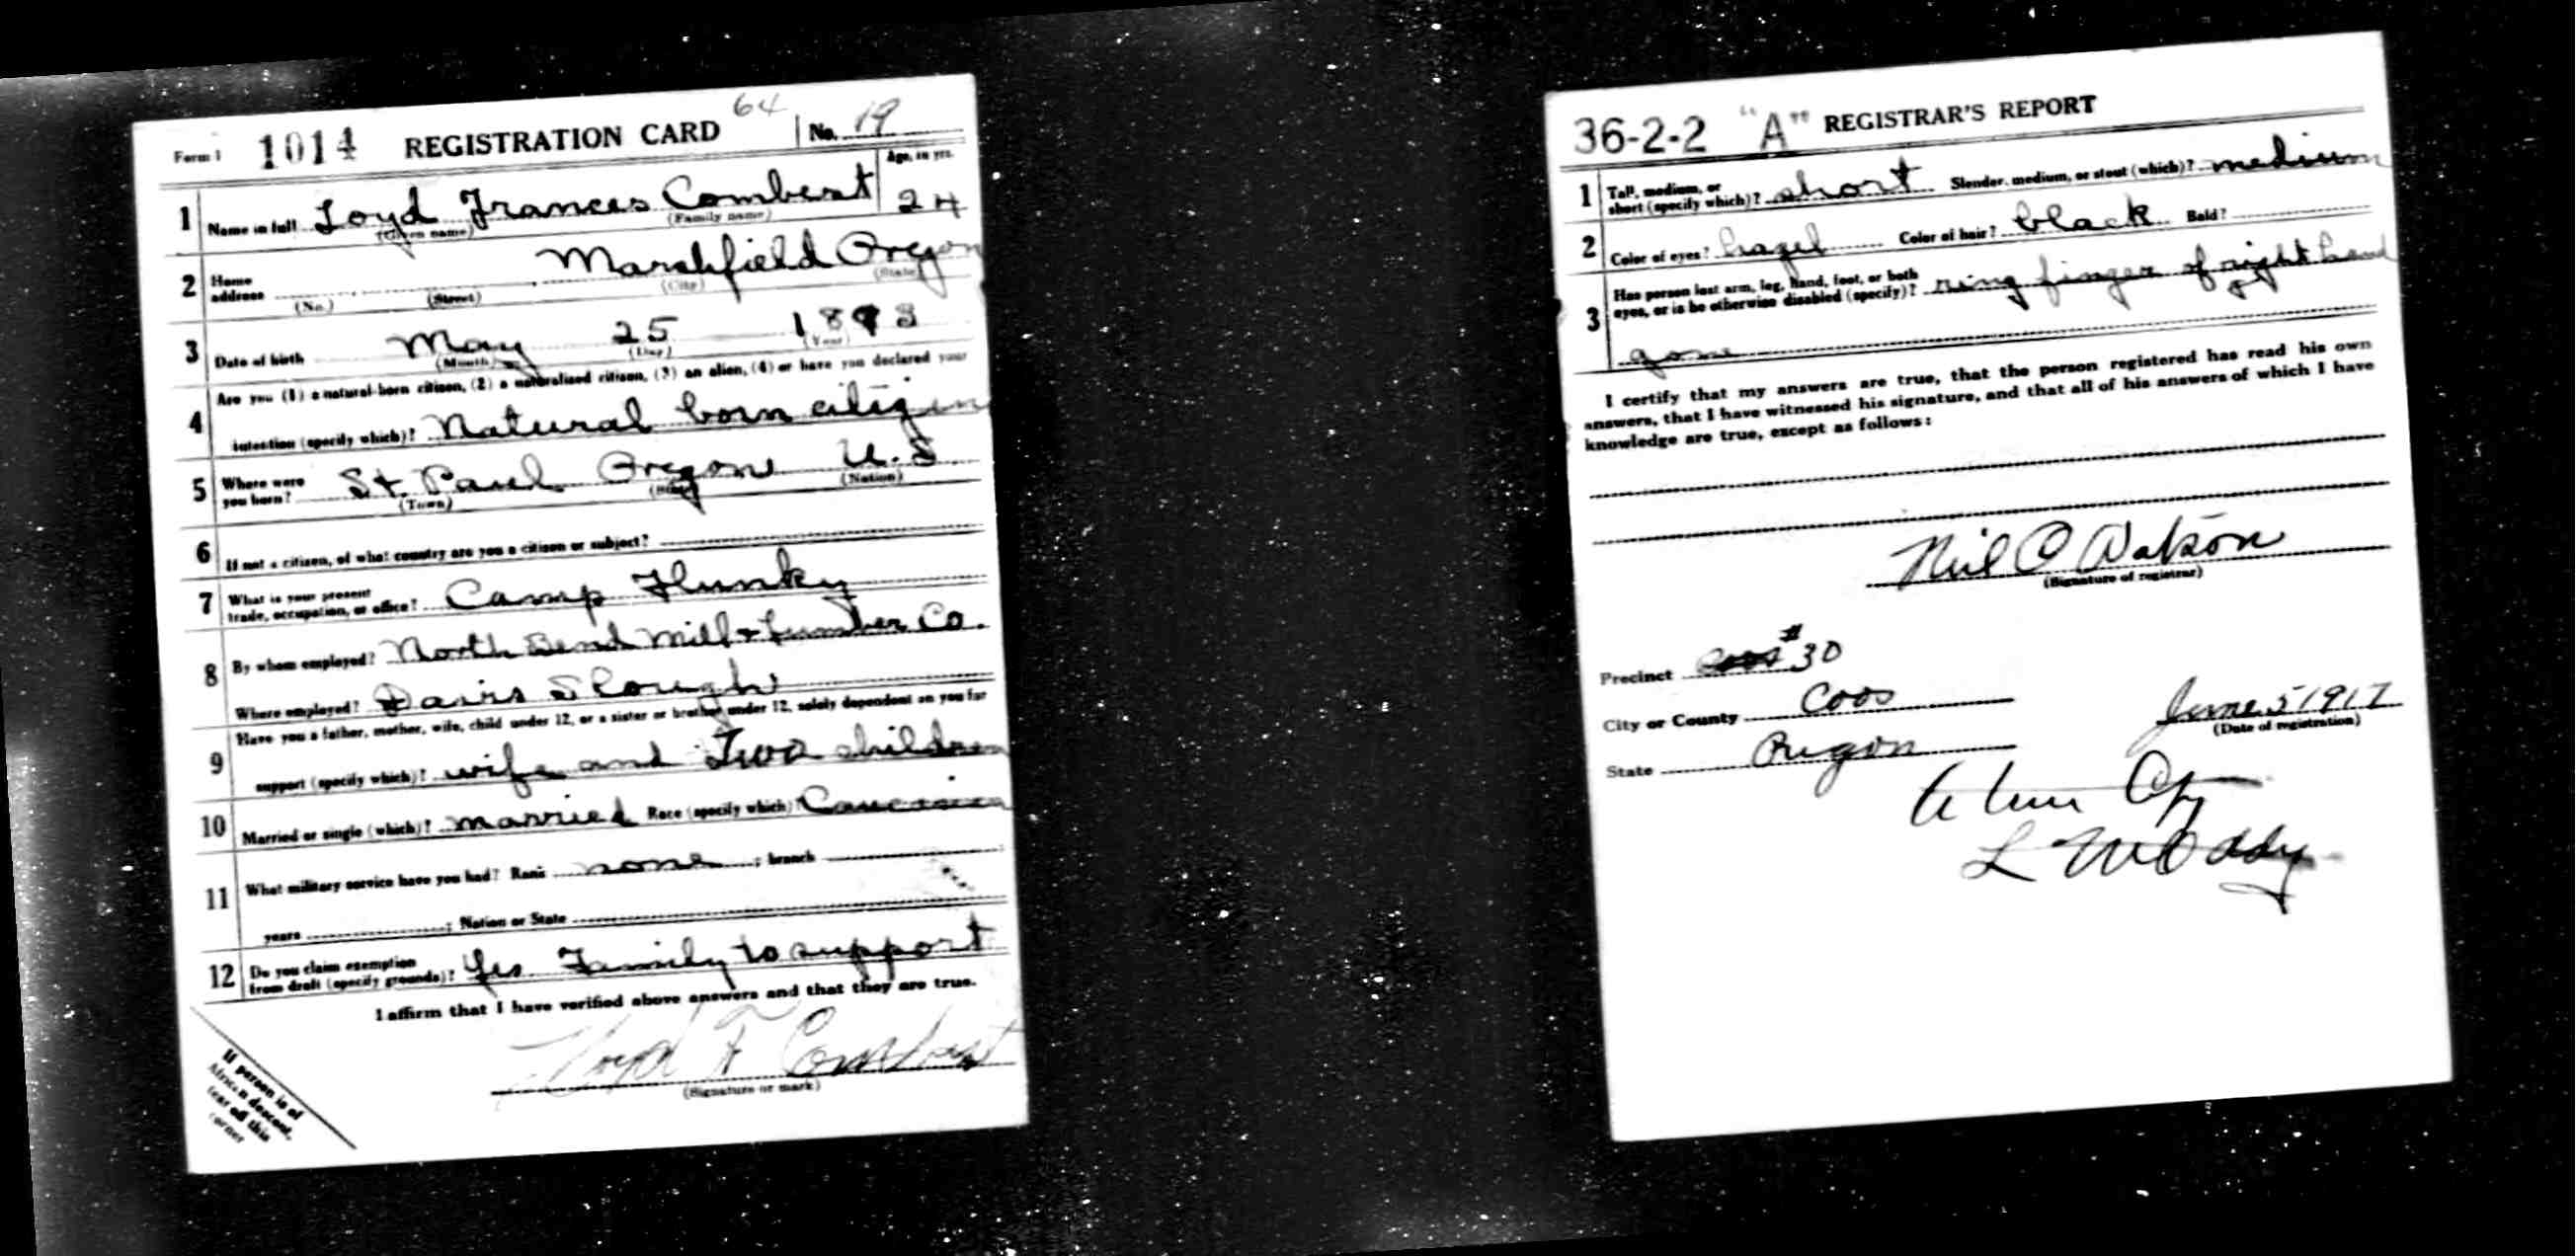 Form 1 1014 REGISTRATION CARD 64 No. 19
1 Name in full Loyd Frances Combest Age, in yrs. 24
(Given name) (Family name)
2 Home address Marshfield Oregon
(No.) (Street) (City) (State)
3 Date of birth May 25 1893
(Month) (Day) (Year)
Are you (1) a natural-born citizen, (2) a naturalized citizen, (3) an alien, (4) or have you declared your
4 intention (specify which)? Natural born citizen
5 Where were you born? St. Paul Oregon U.S
(Town) (State) (Nation)
6 If not a citizen, of what country are you a citizen or subject?
7 What is your present trade, occupation, or office? Camp Flunky
8 By whom employed? North Bend Mill & Lumber Co.
Where employed? Davis Slough
Have you a father, mother, wife, child under 12, or a sister or brother under 12, solely dependent on you for
9 support (specify which)? wife and Two children
10 Married or single (which)? married Race (specify which)? Caucasian
11 What military service have you had? Rank none ; branch
years ; Nation or State
12 Do you claim exemption from draft (specify grounds)? Yes Family to support
I affirm that I have verified above answers and that they are true.
Loyd F Combest
(Signature or mark)
If person is of
African descent,
tear off this
corner
36-2-2 "A" REGISTRAR'S REPORT
1 Tall, medium, or short (specify which)? short Slender, medium, or stout (which)? medium
2 Color of eyes? hazel Color of hair? black Bald?
3 Has person lost arm, leg, hand, foot, or both eyes, or is he otherwise disabled (specify)? ring finger of right hand
gone
I certify that my answers are true, that the person registered has read his own
answers, that I have witnessed his signature, and that all of his answers of which I have
knowledge are true, except as follows:
Neil C Watson
(Signature of registrar)
Precinct Coos #30
City or County Coos
June 5 1917
(Date of registration)
State Oregon